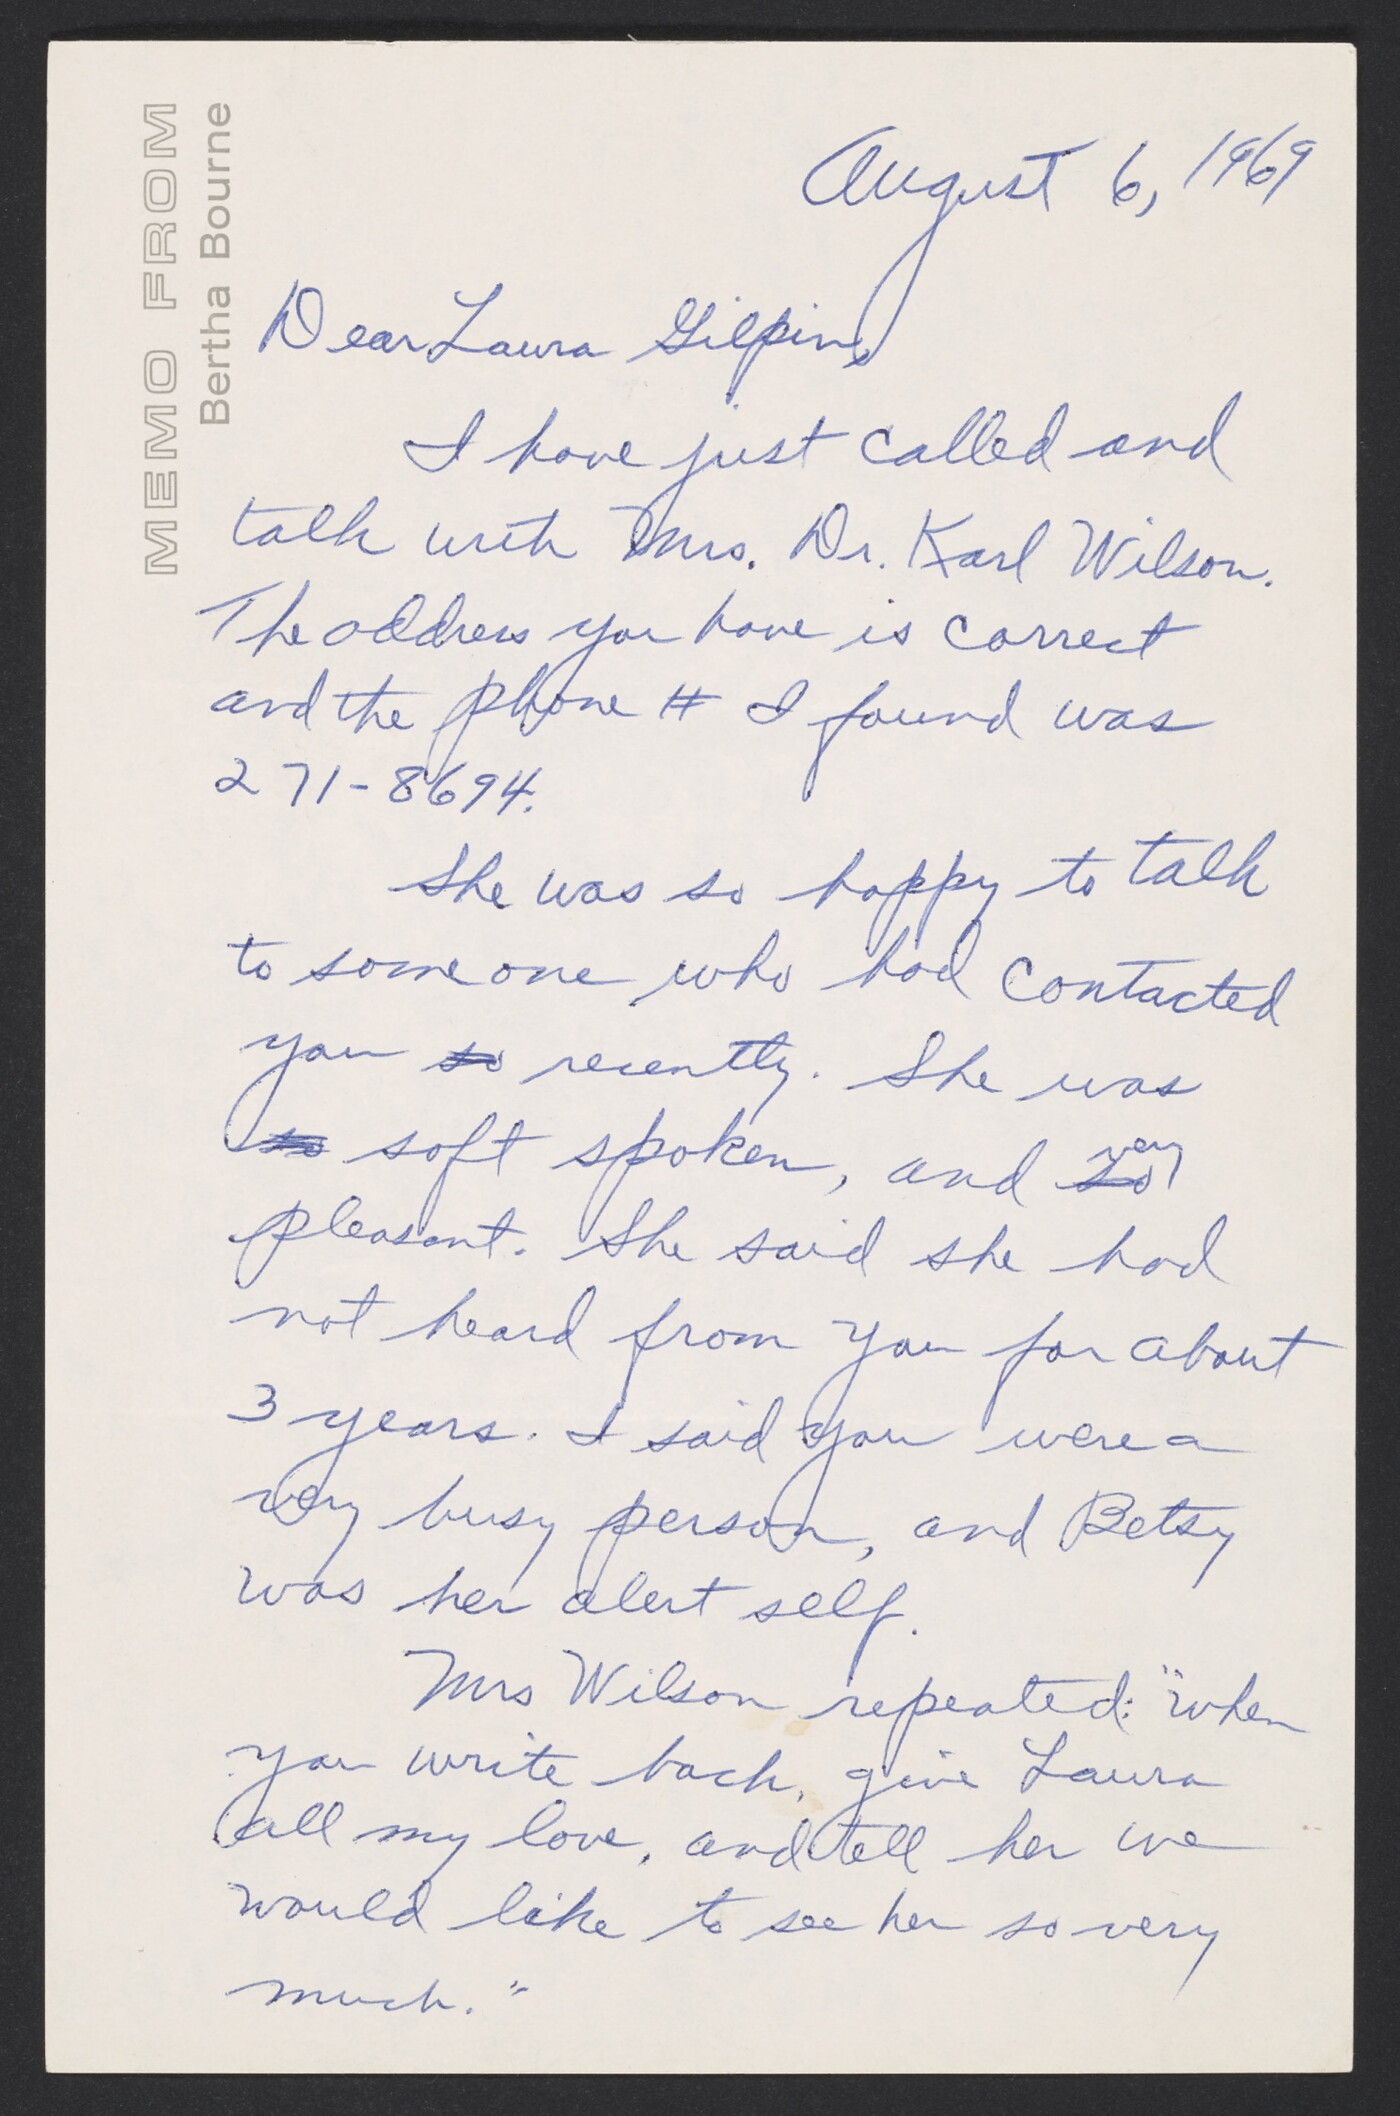 MEMO FROM
Bertha Bourne
August 6, 1969
Dear Laura Gilpin,
I have just called and
talk with Mrs. Dr. Karl Wilson.
The address you have is correct
and the phone # I found was
271-8694.
She was so happy to talk
to someone who had contacted
you so recently. She was
so soft spoken, and so very
pleasant. She said she had
not heard from you for about
3 years. I said you were a
very busy person, and Betsy
was her alert self.
Mrs Wilson repeated: "when
you write back, give Laura
all my love, and tell her we
would like to see her so very
much."